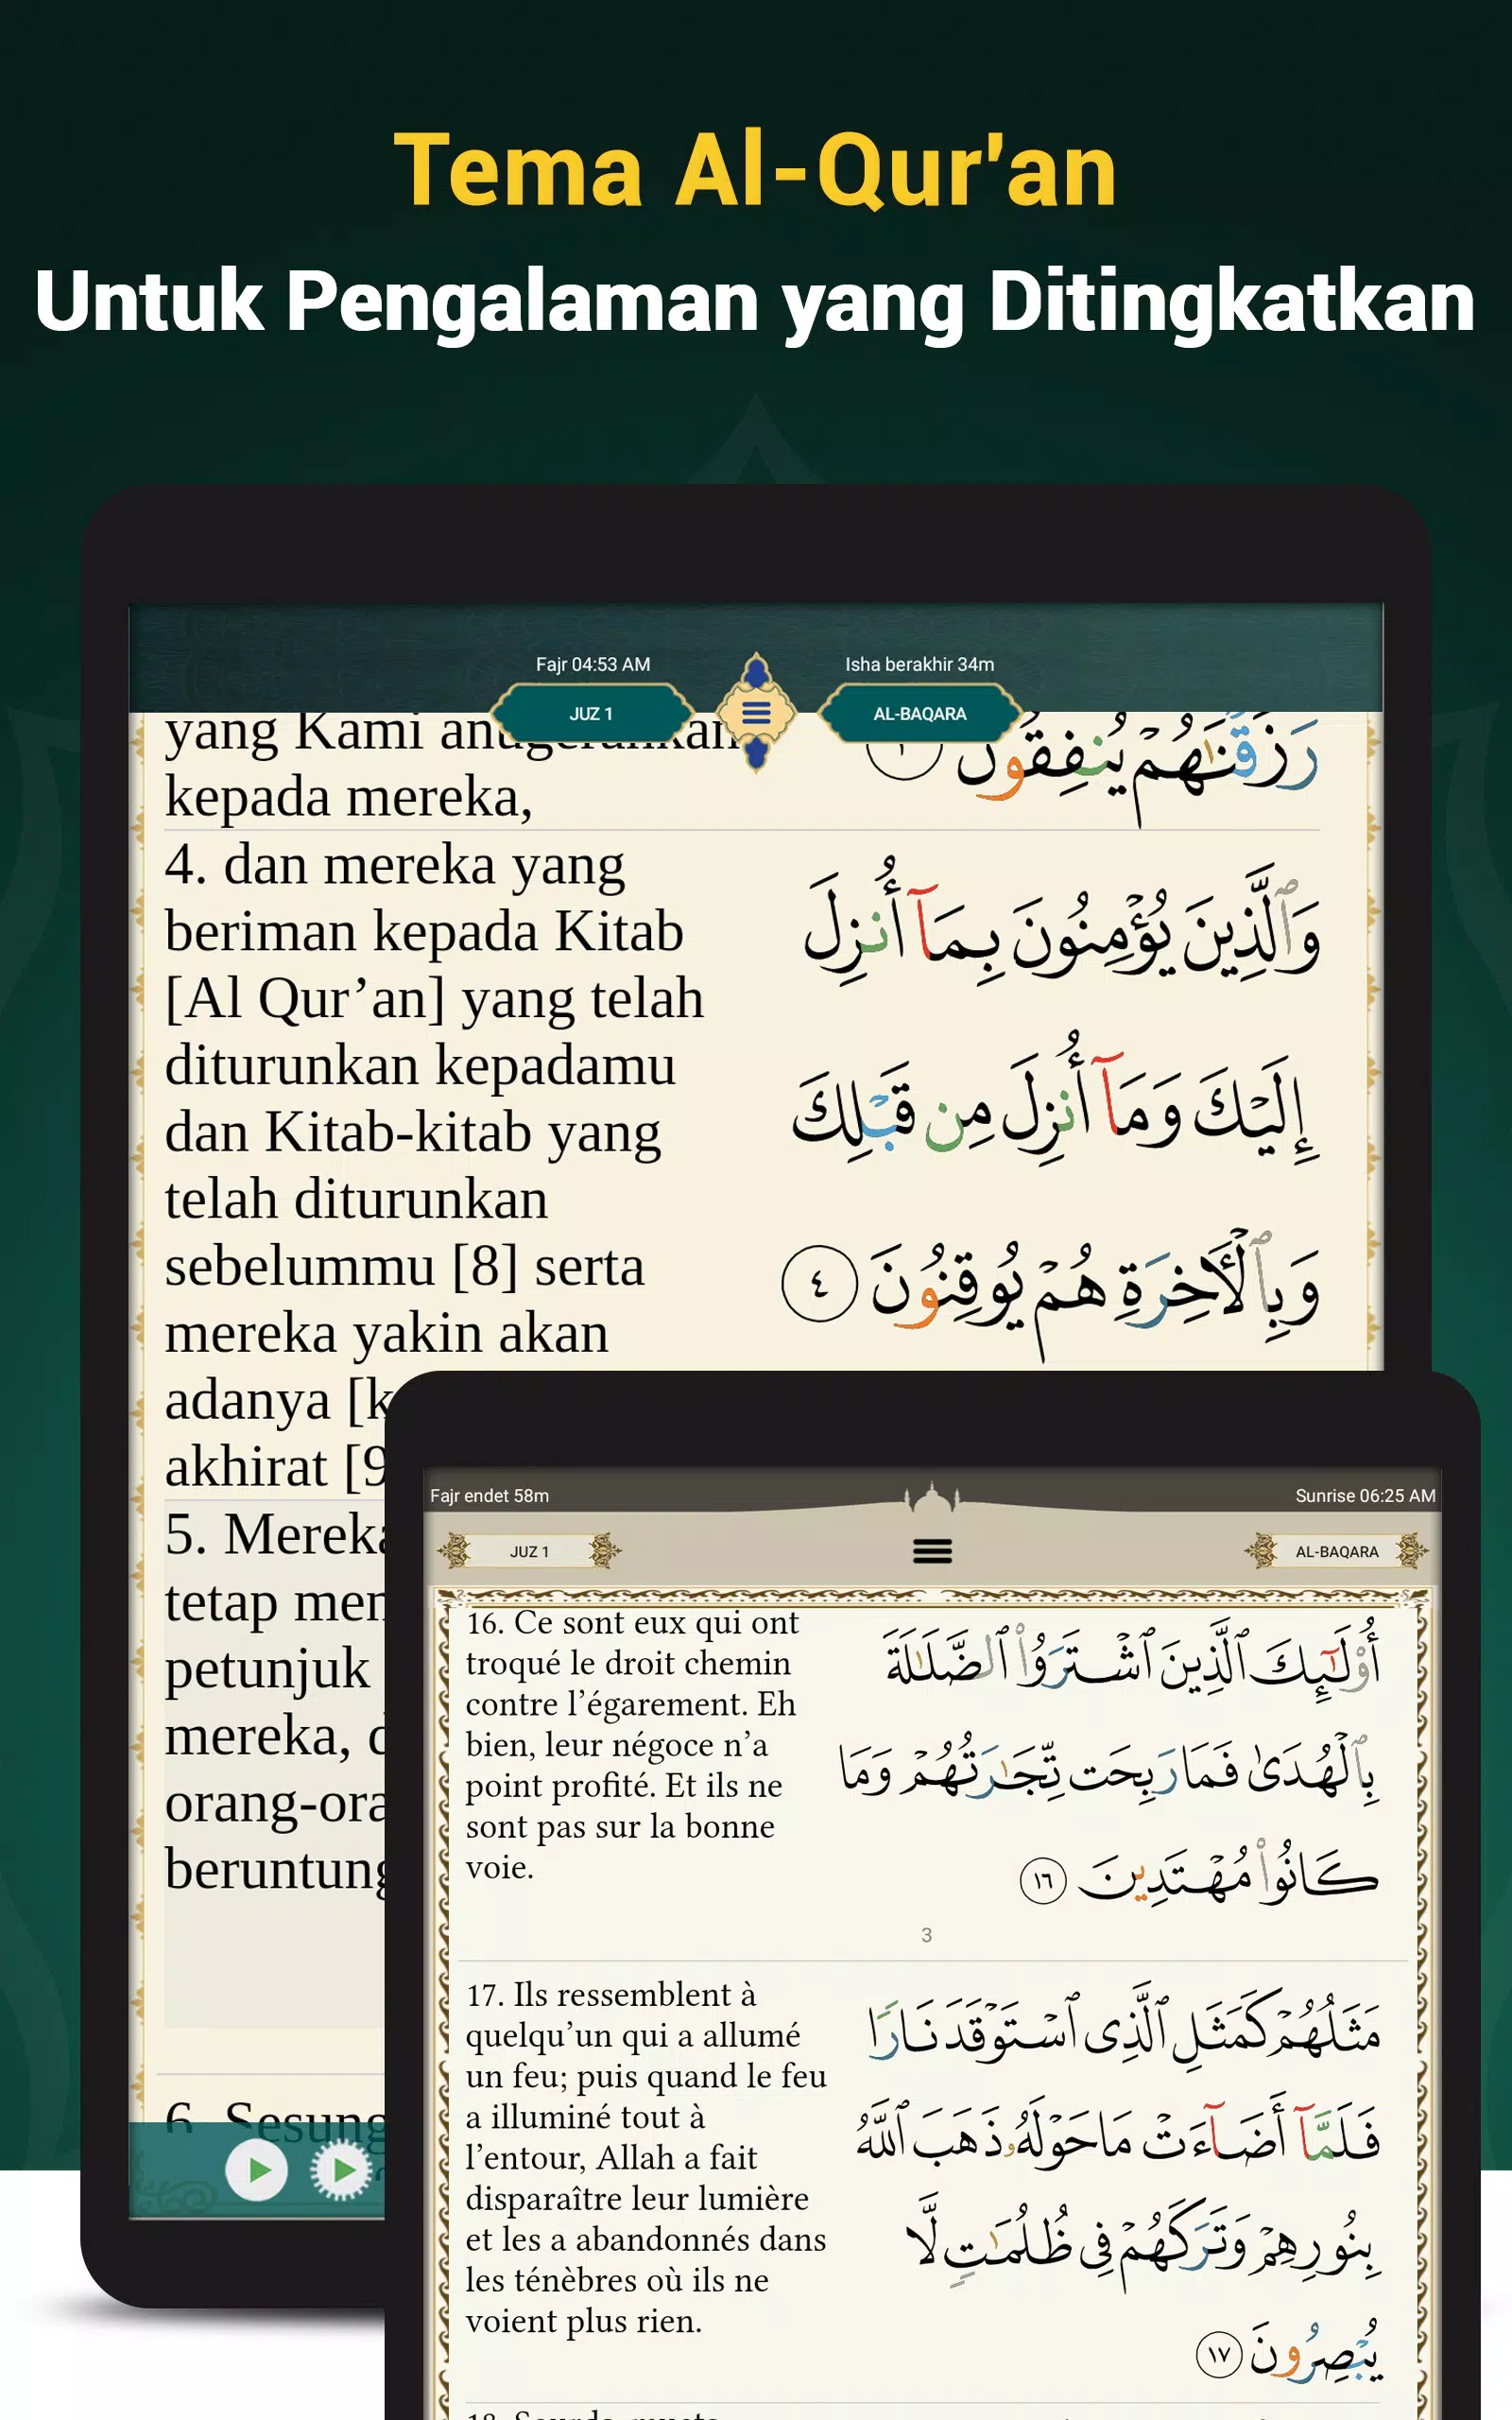 Tema Al-Qur'an
Untuk Pengalaman yang Ditingkatkan
Fajr 04:53 AM
Isha berakhir 34m
JUZ 1
AL-BAQARA
yang Kami
kepada mereka,
رَزَقْنَـٰهُمْ يُنفِقُونَ
4. dan mereka yang
beriman kepada Kitab
[Al Qur’an] yang telah
diturunkan kepadamu
dan Kitab-kitab yang
telah diturunkan
sebelummu [8] serta
mereka yakin akan
adanya [k
akhirat [9
وَٱلَّذِينَ يُؤْمِنُونَ بِمَآ أُنزِلَ
إِلَيْكَ وَمَآ أُنزِلَ مِن قَبْلِكَ
وَبِٱلْـَٔاخِرَةِ هُمْ يُوقِنُونَ ٤
5. Mereka
tetap men
petunjuk
mereka, d
orang-ora
beruntung
6. Sesung
Fajr endet 58m
Sunrise 06:25 AM
JUZ 1
AL-BAQARA
16. Ce sont eux qui ont
troqué le droit chemin
contre l’égarement. Eh
bien, leur négoce n’a
point profité. Et ils ne
sont pas sur la bonne
voie.
أُو۟لَـٰٓئِكَ ٱلَّذِينَ ٱشْتَرَوُا۟ ٱلضَّلَـٰلَةَ
بِٱلْهُدَىٰ فَمَا رَبِحَت تِّجَـٰرَتُهُمْ وَمَا
كَانُوا۟ مُهْتَدِينَ ١٦
3
17. Ils ressemblent à
quelqu’un qui a allumé
un feu; puis quand le feu
a illuminé tout à
l’entour, Allah a fait
disparaître leur lumière
et les a abandonnés dans
les ténèbres où ils ne
voient plus rien.
مَثَلُهُمْ كَمَثَلِ ٱلَّذِى ٱسْتَوْقَدَ نَارًا
فَلَمَّآ أَضَآءَتْ مَا حَوْلَهُۥ ذَهَبَ ٱللَّهُ
بِنُورِهِمْ وَتَرَكَهُمْ فِى ظُلُمَـٰتٍ لَّا
يُبْصِرُونَ ١٧